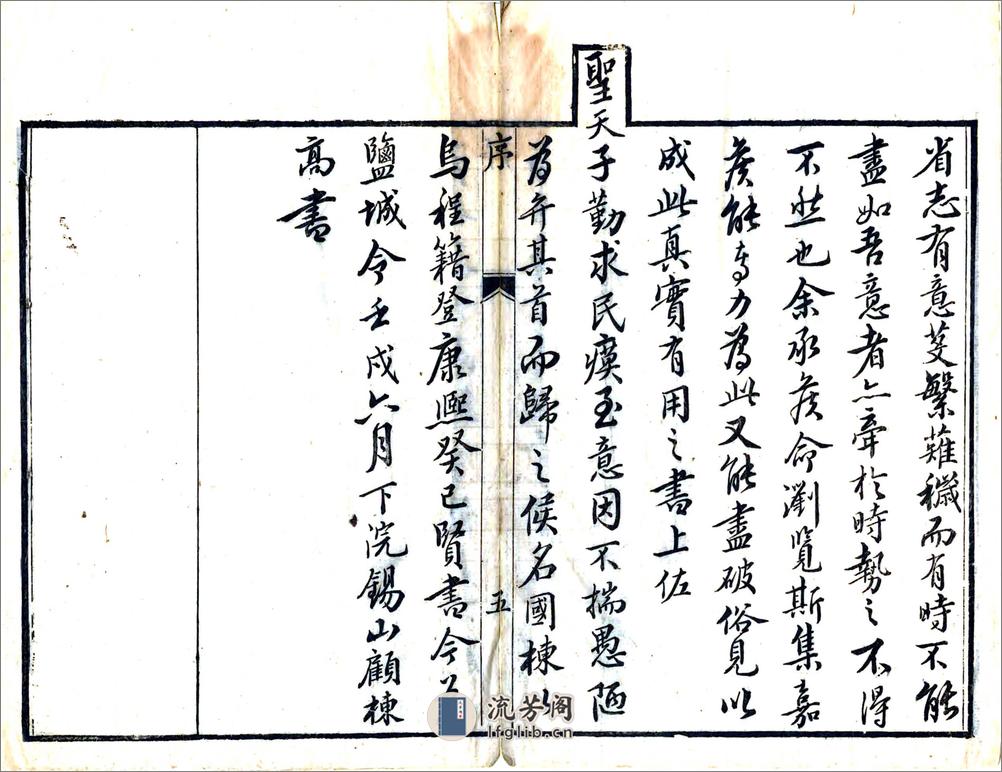 省志有意芟繁薙穢而有時不能
盡如吾意者亦牽於時勢之不得
不然也余承侯命瀏覽斯集嘉
侯能專力為此又能盡破俗見以
成此真實有用之書上佐
聖天子勤求民瘼至意因不揣愚陋
為弁其首而歸之侯名國棟以
序 五
烏程籍登康熙癸巳賢書今為
鹽城令壬戌六月下浣錫山顧棟
高書
流芳阁
lfglib.cn